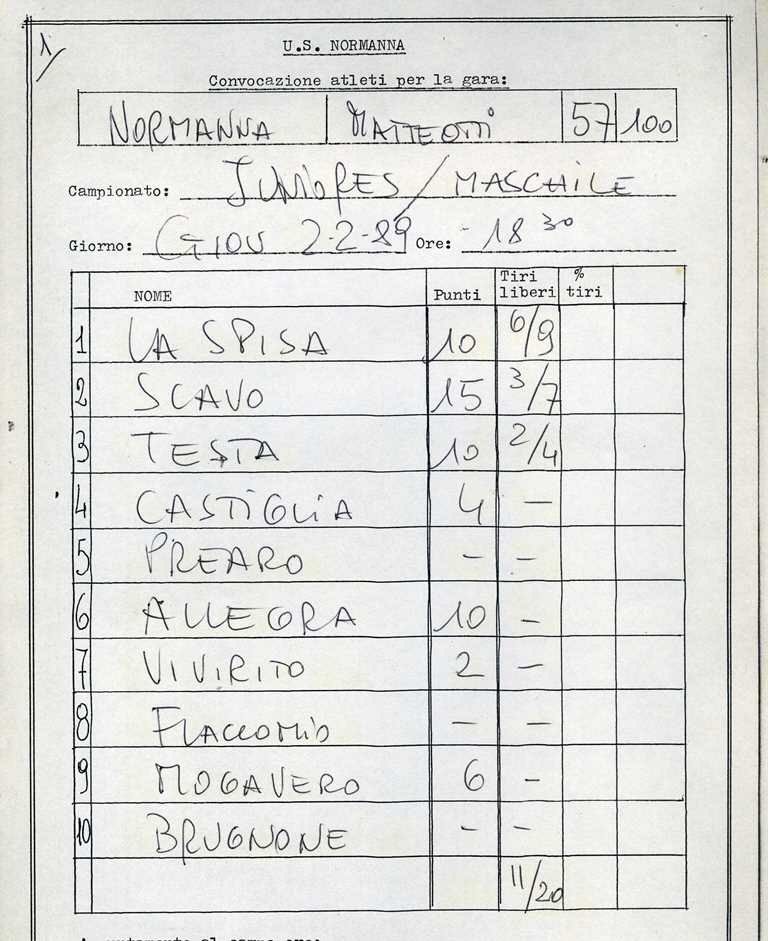 1/
U.S. NORMANNA
Convocazione atleti per la gara:
NORMANNA MATTEOTTI 57 100
Campionato: JUNIORES / MASCHILE
Giorno: GIOV 2-2-89 Ore: - 18 30
NOME Punti Tiri liberi % tiri
1 LA SPISA 10 6/9
2 SCAVO 15 3/7
3 TESTA 10 2/4
4 CASTIGLIA 4 —
5 PREARO — —
6 ALLEGRA 10 —
7 VIVIRITO 2 —
8 FLACCOMIO — —
9 MOGAVERO 6 -
10 BRUGNONE - —
11/20